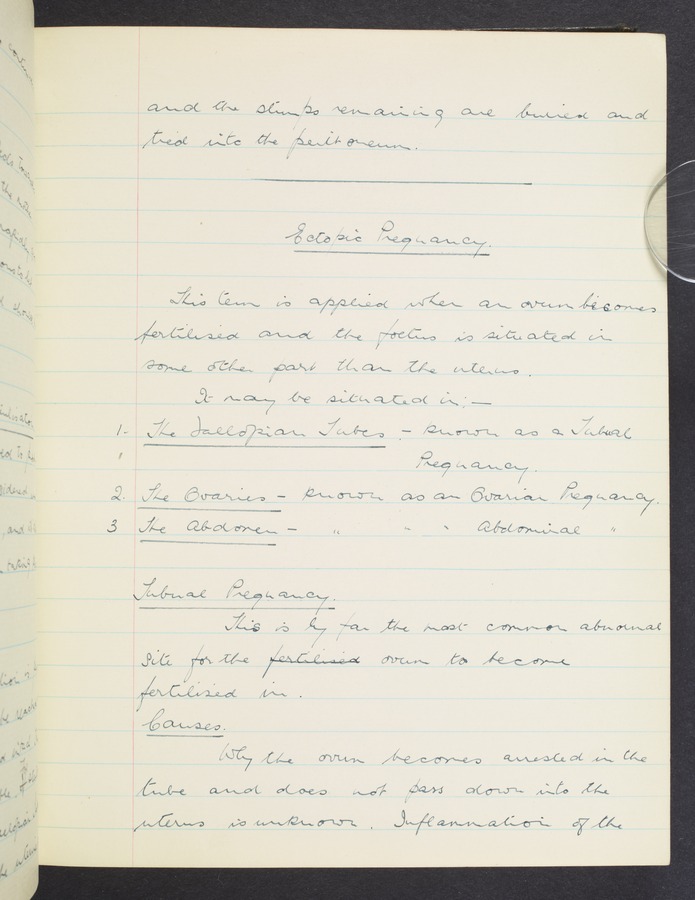 and the stumps remaining are buried and
tied into the peritoneum.
Ectopic Pregnancy.
This term is applied when an ovum becomes
fertilised and the foetus is situated in
some other part than the uterus.
It may be situated in:—
1. The Fallopian Tubes - known as a Tubal
Pregnancy.
2. The Ovaries - known as an Ovarian Pregnancy.
3 The Abdomen - " " " Abdominal "
Tubual Pregnancy.
This is by far the most common abnormal
site for the fertilised ovum to become
fertilised in.
Causes.
Why the ovum becomes arrested in the
tube and does not pass down into the
uterus is unknown. Inflammation of the